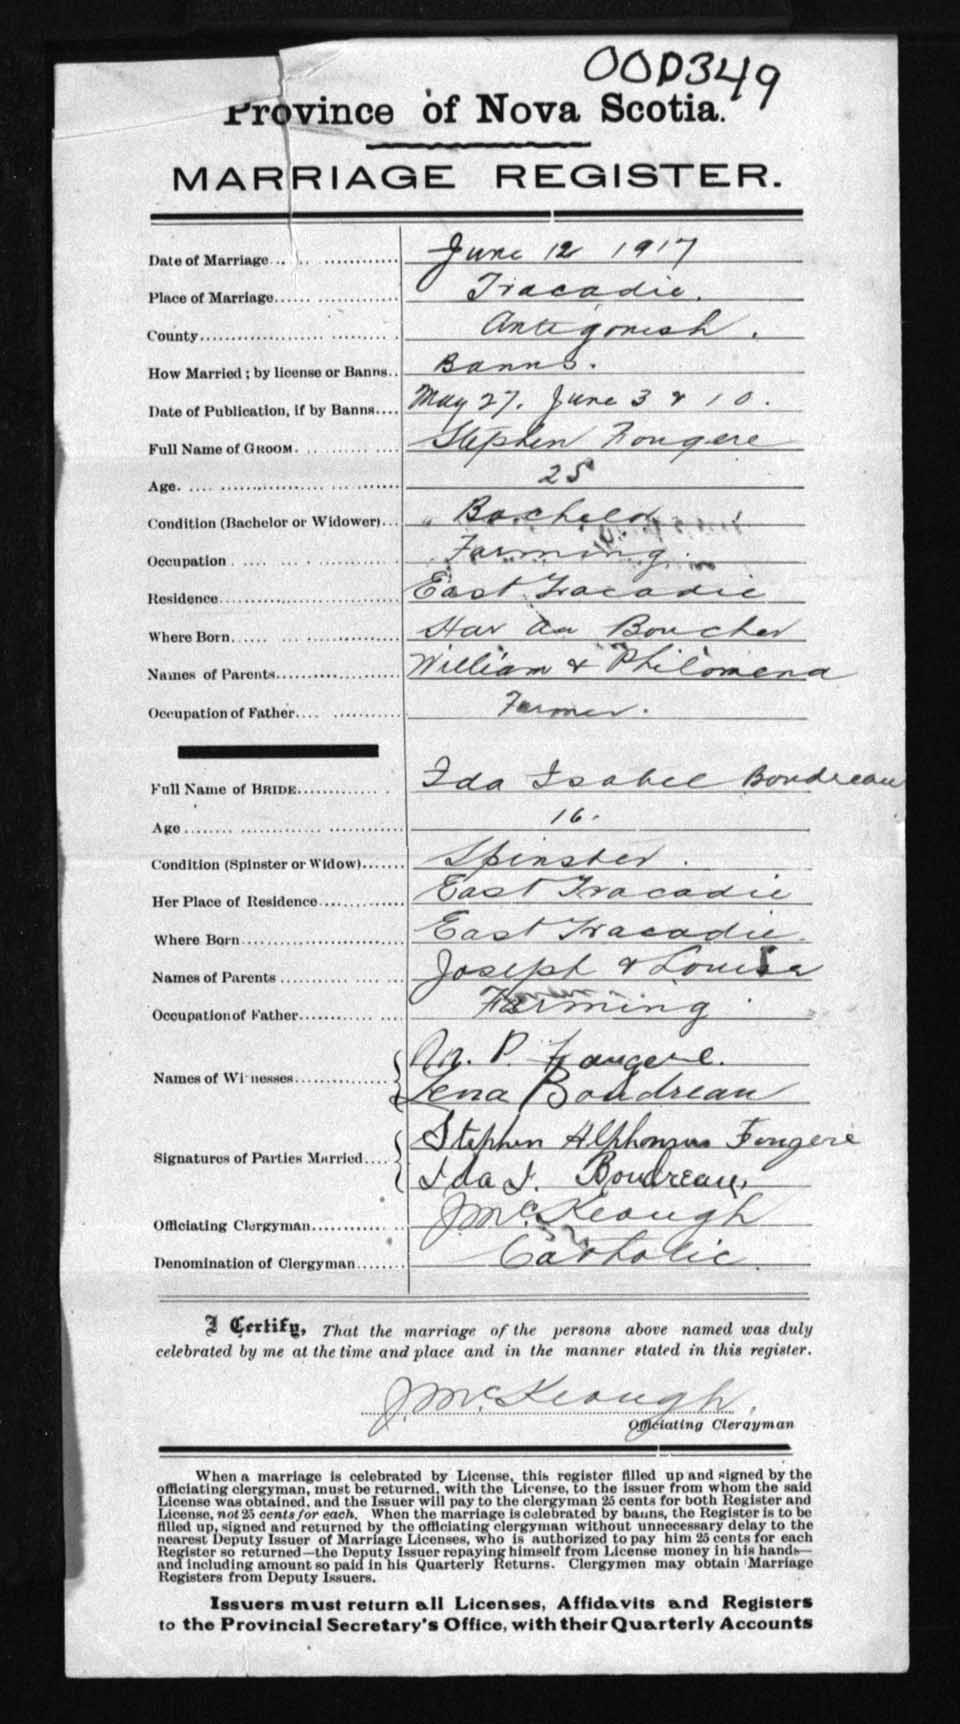 OOD349
Province of Nova Scotia.
MARRIAGE REGISTER.
Date of Marriage... June 12 1917
Place of Marriage... Tracadie.
County... Antigonish.
How Married; by license or Banns.. Banns.
Date of Publication, if by Banns.... May 27. June 3 & 10.
Full Name of GROOM... Stephen Fougere
Age... 25
Condition (Bachelor or Widower)... Bachelor
Occupation... Farming.
Residence... East Tracadie
Where Born... Har au Boucher
Names of Parents... William & Philomena
Occupation of Father... Farmer.
Full Name of BRIDE... Ida Isabel Boudreau
Age... 16.
Condition (Spinster or Widow)... Spinster.
Her Place of Residence... East Tracadie
Where Born... East Tracadie.
Names of Parents... Joseph & Louisa
Occupation of Father... Farming.
Names of Witnesses... M. P. Fougere.
Lena Boudreau
Signatures of Parties Married.... Stephen Alphonsus Fougere
Ida I. Boudreau,
Officiating Clergyman... J. McKeough
Denomination of Clergyman... Catholic.
I Certify, That the marriage of the persons above named was duly
celebrated by me at the time and place and in the manner stated in this register.
J. McKeough.
Officiating Clergyman
When a marriage is celebrated by License, this register filled up and signed by the
officiating clergyman, must be returned, with the License, to the issuer from whom the said
License was obtained, and the Issuer will pay to the clergyman 25 cents for both Register and
License, not 25 cents for each. When the marriage is celebrated by banns, the Register is to be
filled up, signed and returned by the officiating clergyman without unnecessary delay to the
nearest Deputy Issuer of Marriage Licenses, who is authorized to pay him 25 cents for each
Register so returned—the Deputy Issuer repaying himself from License money in his hands—
and including amount so paid in his Quarterly Returns. Clergymen may obtain Marriage
Registers from Deputy Issuers.
Issuers must return all Licenses, Affidavits and Registers
to the Provincial Secretary's Office, with their Quarterly Accounts